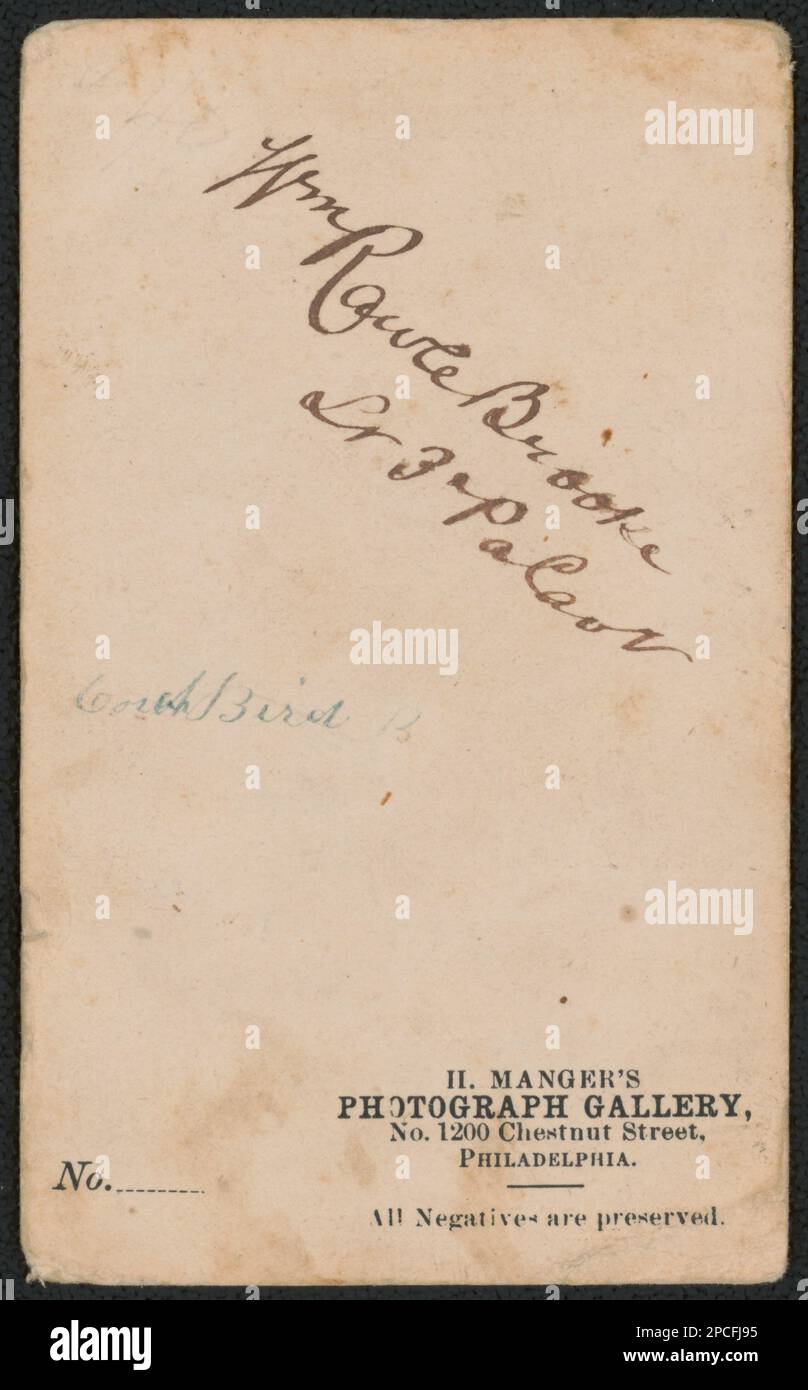 Wm
Rawle Brooke
Lt 3d Pa Cavy
Bird B
H. MANGER'S
PHOTOGRAPH GALLERY,
No. 1200 Chestnut Street,
PHILADELPHIA.
No.
All Negatives are preserved.
alamy
Image ID: 2PCFJ95
www.alamy.com